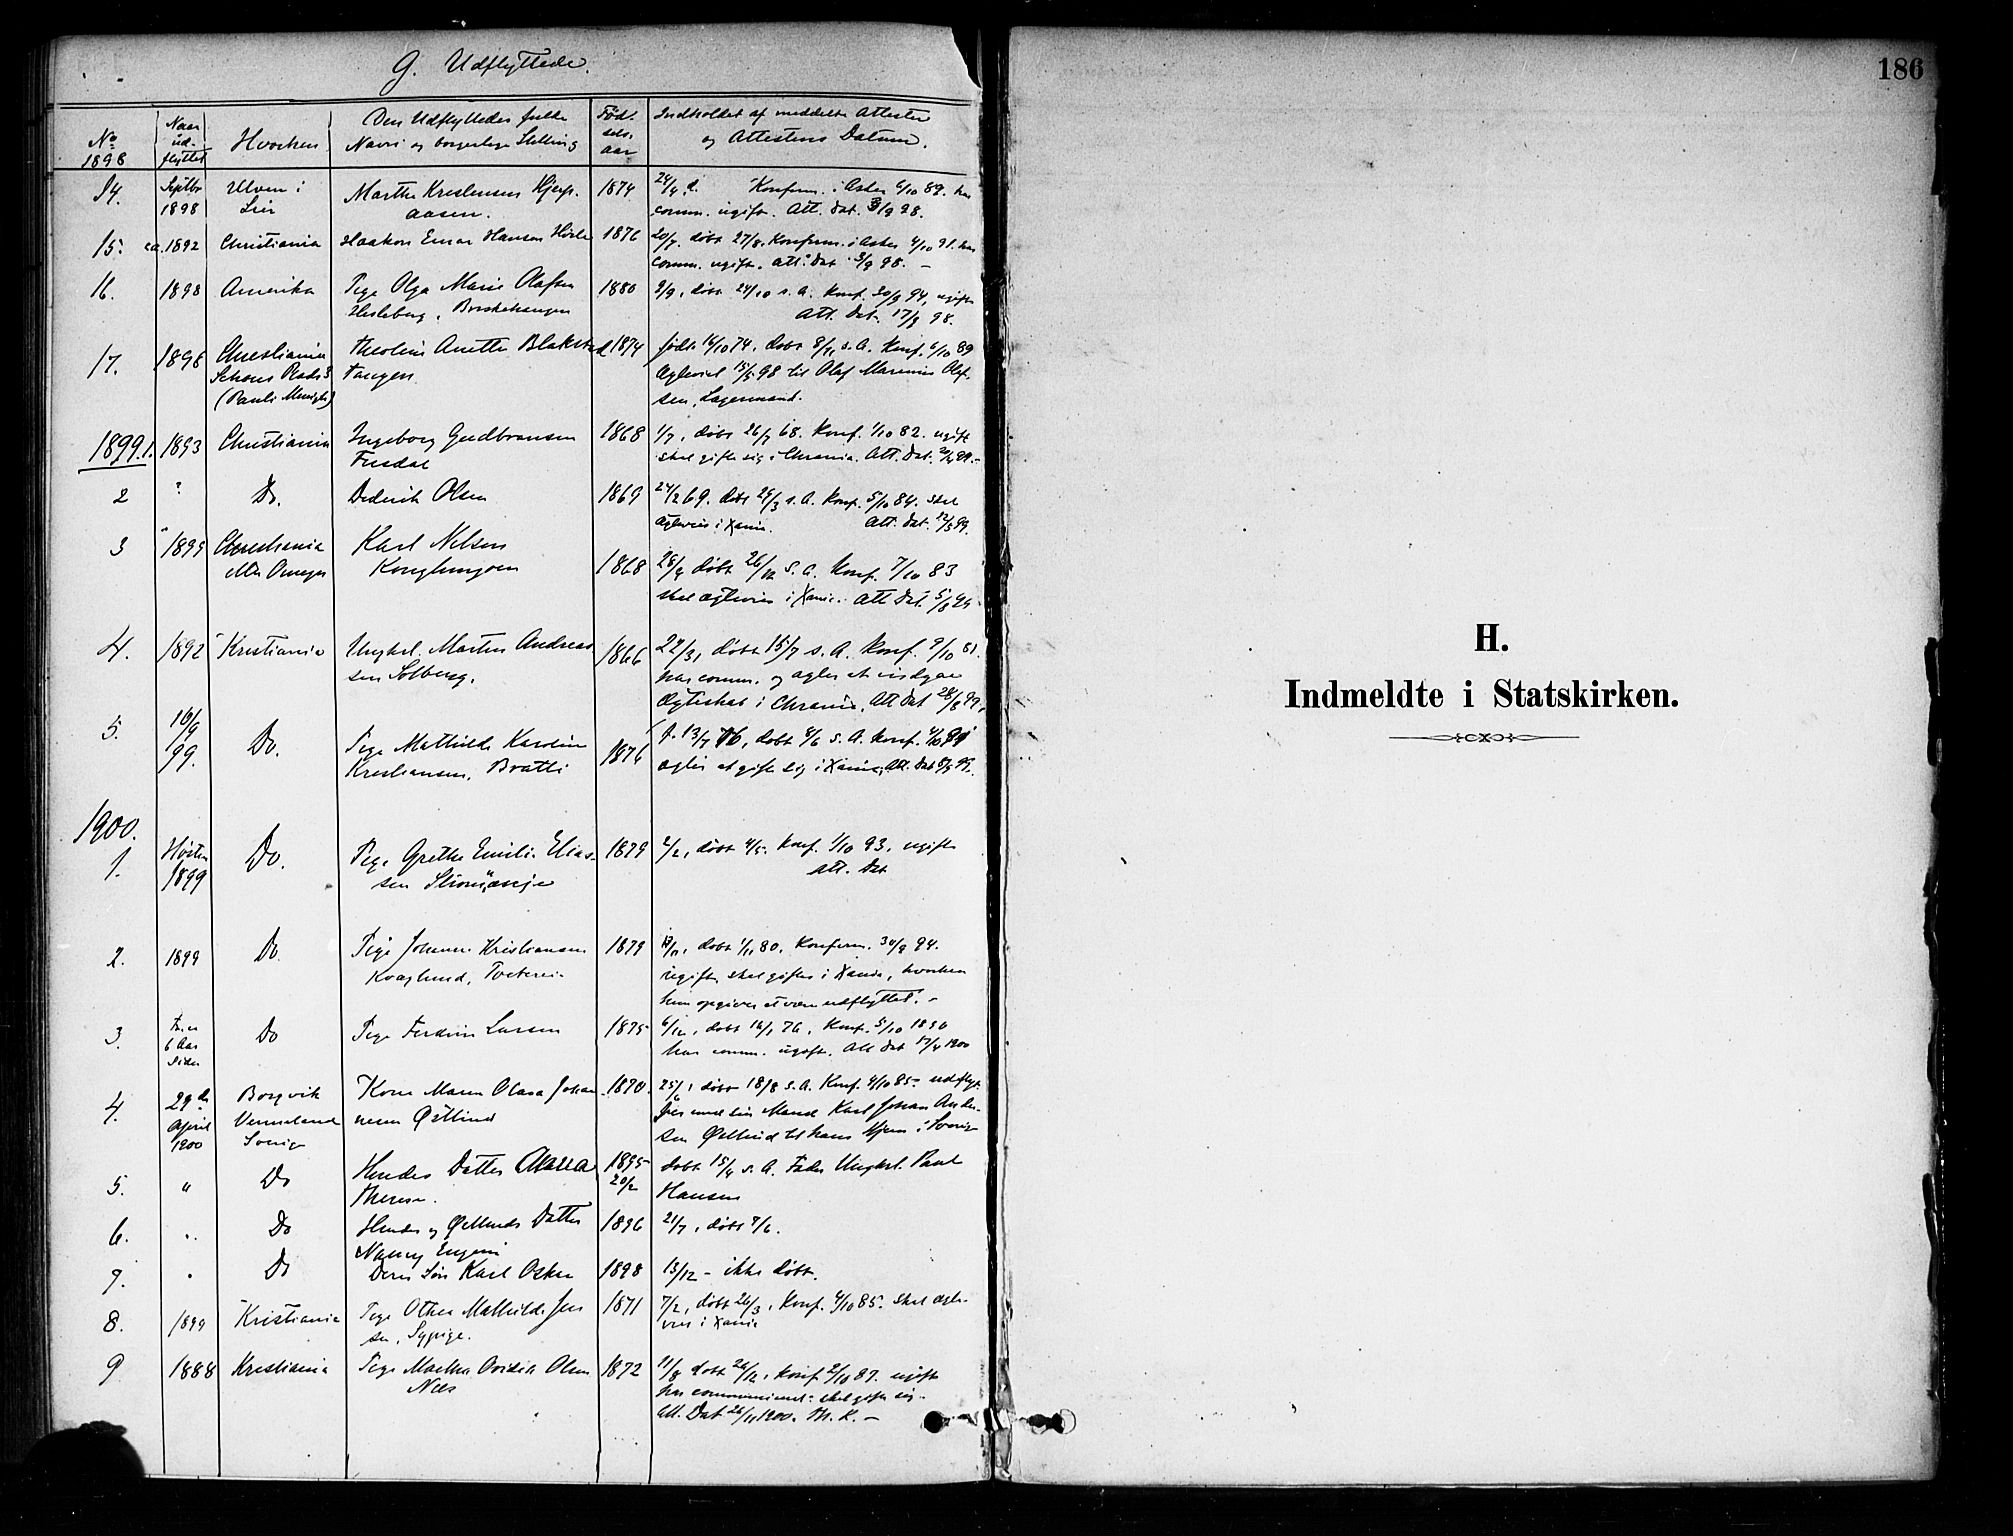 G. Udflyttede.
No 1898 | Naar ud-flyttet | Hvorhen | Den Udflyttedes fulde Navn og borgerlige Stilling | Fød-sels-aar | Indholdet af meddelte Attester og Attestens Datum.
14. | Septbr 1898 | Ulven i Lier | Marthe Kristensen | 1874 | 24/4 d. Konferm. i Asker 6/10 89. har
aasen. | comm. ugift. Att. dat. 3/9 98.
15. | ca. 1892 | Christiania | Haakon Einar Hansen | 1876 | 20/7. døbt 27/8. Konferm. i Asker 4/10 91. har
comm. ugift. Att. dat 3/9 98. –
16. | 1898 | Amerika | Pige Olga Marie Olafsen | 1880 | 9/9, døbt 24/10 s. A. Konf. 30/9 94, ugift
Att. Dat. 17/9 98.
17. | 1898 | Christiania | Anette Blakstad | 1874 | født 16/10 74, døbt 8/11 s. A. Konf. 6/10 89
Schous Plads 3 | Tangen | 98 til Olaf Marinius Olaf-
(Pauli Menigh) | sen, Lagermand.
1899. 1. | 1893 | Christiania | Ingeborg Gudbransen | 1868 | 1/7, døbt 26/7 68. Konf. 1/10 82. ugift
skal gifte sig i Chrania. Att. Dat.
2 | ? | Do. | Dederik Olsen | 1869 | 24/2 69. døbt 29/3 s. A. Konf. 5/10 84. skal
ægtevies i Xania. Att. Dat. 12/5 99.
3 | 1899 | Christiania | Karl Nelsen | 1868 | døbt 26/12 s. A. Konf. 7/10 83
eller Omegn | Konglungen | skal ægtevies i Xania. Att Dat. 5/8 99
4. | 1892 | Kristiania | Ungkrl. Martin Andreas | 1866 | døbt 15/7 s. A. Konf. 9/10 81.
sen Solberg. | har comm. og agter at indgaa
Ægteskab i Chrania, Att Dat 28/8 99.
5. | 16/9 99. | Do. | Pige Mathilde Karoline | 1876 | f. 13/4 76, døbt 8/6 s. A. Konf. 4/10 91
Kristiansen, Bratli | agter at gifte sig i Xania, Att. Dat 99.
1900.
1. | Høsten 1899 | Do. | Pige Grethe Emilie Elias- | 1879 | 2/2, døbt 4/5. Konf. 1/10 93, ugift
sen | Att. Dat
2. | 1899 | Do. | Pige Johanne Kristiansen | 1879 | døbt 1/11 80. Konferm. 30/9 94.
ugift, skal giftes i Xania, hvorhen
hun opgives at være udflyttet. –
3. | 6 Aar siden | Do | Pige Larsen | 1875 | 6/12, døbt 16/1 76, Konf. 5/10 1890
har comm. ugift. Att Dat 17/4 1900
4. | 29de April 1900 | Borgvik | Kone Maren Olava Johan- | 1870. | 25/6, døbt 18/8 s. A. Konf. 4/10 85– udflyt-
Vermeland | nesen Østlind | med sin Mand Karl Johan Ander-
Sverige | sen Østlind til hans Hjem i Sverige
5. | " | Do | Hendes Datter | 1895 | døbt 15/4 s. A. Fader Ungkrl. Paul
Therese. | 20/2 | Hansen
6. | " | Do | Hendes og Østlinds Datter | 1896 | 21/7, døbt 7/6.
Nancy Eugenie
7. | " | Do | Deres Søn Karl Oskar | 1898 | 13/12 – ikke døbt.
8. | 1899 | Kristiania | Pige Othea Mathilde Jen | 1871 | 7/2, døbt 26/3, Konf. 4/10 85. skal ægte-
sen, Sypige. | vies i Xania
9 | 1888 | Kristiania | Pige Martha Ovidia Olsen | 1872 | 11/8 døbt 26/12, Konf 2/10 87. ugift
Nes | har communiceret. skal gifte sig.
Att. Dat 26/11 1900. Th. K. –
186
H.
Indmeldte i Statskirken.